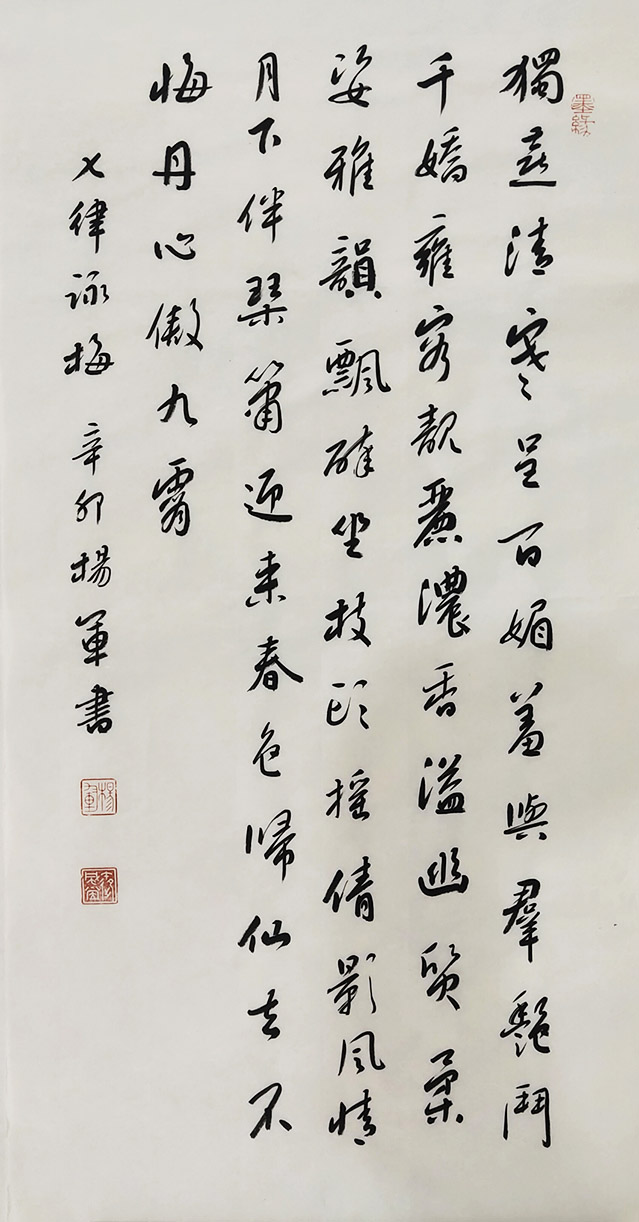 墨緣
獨清寒呈百媚羞與羣艷鬥
千嬌雍容靚麗濃香溢幽質柔
姿雅韻飄醉坐枝頭搖倩影風情
月下伴琴簫迎來春色歸仙去不
悔丹心傲九霄
七律詠梅 辛卯楊軍書
楊軍